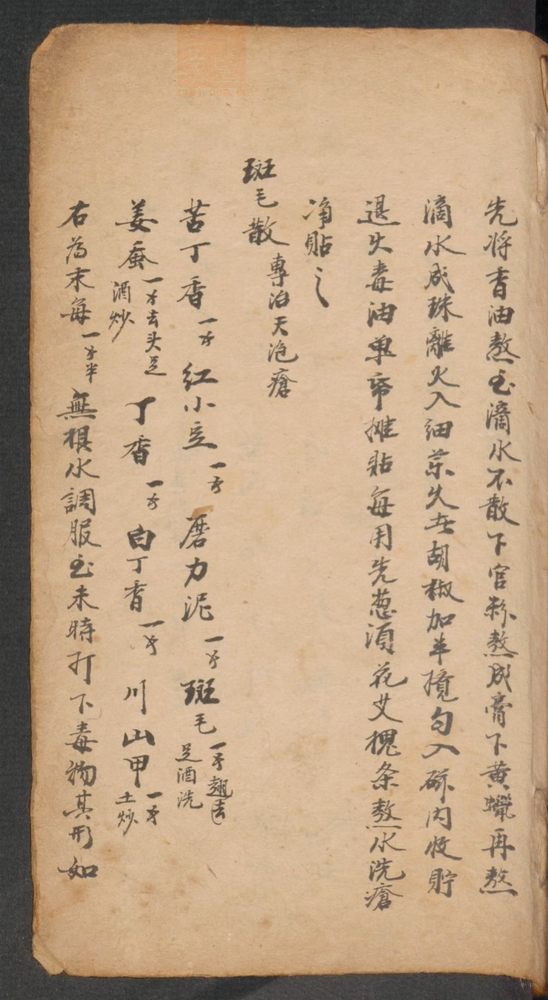 先将香油熬至滴水不散下官粉熬成膏下黄蠟再熬
滴水成珠離火入细茶久去胡椒加羊攪匀入磁内收貯
退火毒油单帋摊贴每用先葱須花艾槐条熬水洗瘡
净贴之
斑毛散 專治天泡瘡
苦丁香一子 红小豆一子 磨力泥一子 斑毛一子翅去足酒洗
姜蚕一子去头足酒炒 丁香一子 白丁香一子 川山甲一子土炒
右为末每一子半無根水調服至未時打下毒物其形如